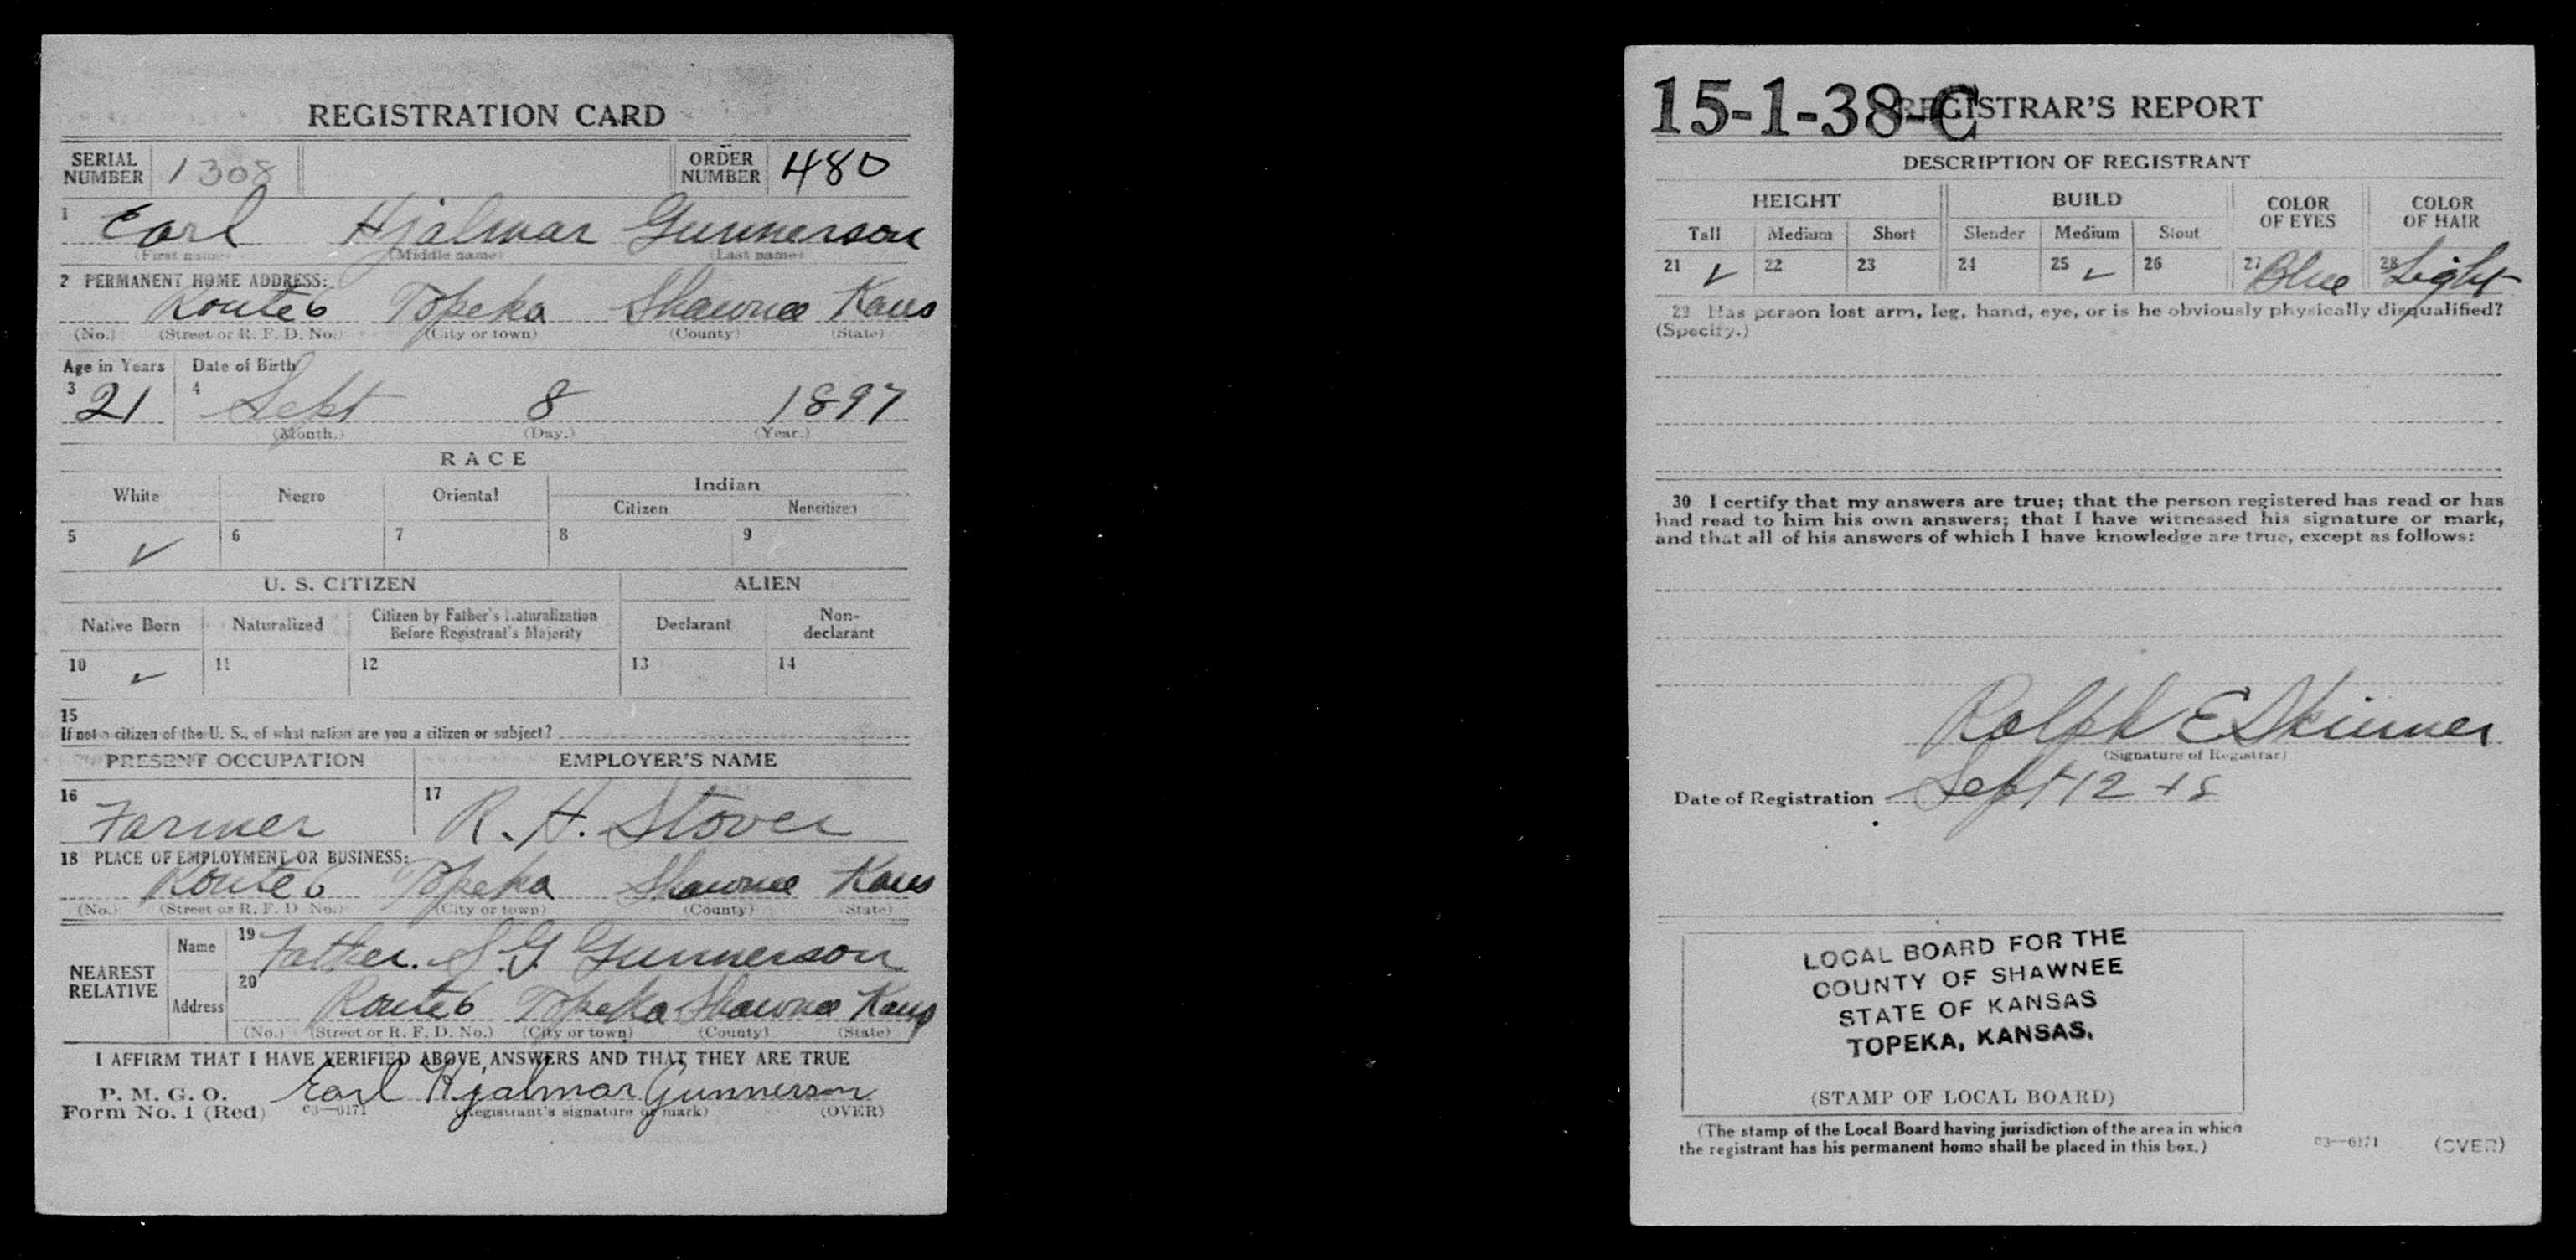 REGISTRATION CARD
SERIAL NUMBER 1308 ORDER NUMBER 480
1 Earl Hjalmar Gunnerson
(First name) (Middle name) (Last name)
2 PERMANENT HOME ADDRESS:
Route 6 Topeka Shawnee Kans
(No.) (Street or R. F. D. No.) (City or town) (County) (State)
Age in Years Date of Birth
3 21 4 Sept 8 1897
(Month.) (Day.) (Year.)
RACE
White Negro Oriental Indian
Citizen Noncitizen
5 ✓ 6 7 8 9
U. S. CITIZEN ALIEN
Native Born Naturalized Citizen by Father's Naturalization Before Registrant's Majority Declarant Non-declarant
10 ✓ 11 12 13 14
15
If not a citizen of the U. S., of what nation are you a citizen or subject?
PRESENT OCCUPATION EMPLOYER'S NAME
16 Farmer 17 R. H. Stover
18 PLACE OF EMPLOYMENT OR BUSINESS:
Route 6 Topeka Shawnee Kans
(No.) (Street or R. F. D. No.) (City or town) (County) (State)
NEAREST RELATIVE
Name 19 Father. S. G. Gunnerson
Address 20 Route 6 Topeka Shawnee Kans
(No.) (Street or R. F. D. No.) (City or town) (County) (State)
I AFFIRM THAT I HAVE VERIFIED ABOVE ANSWERS AND THAT THEY ARE TRUE
P. M. G. O.
Form No. 1 (Red) 03—6171 Earl Hjalmar Gunnerson
(Registrant's signature or mark) (OVER)
15-1-38-C
REGISTRAR'S REPORT
DESCRIPTION OF REGISTRANT
HEIGHT BUILD COLOR OF EYES COLOR OF HAIR
Tall Medium Short Slender Medium Stout
21 ✓ 22 23 24 25 ✓ 26 27 Blue 28 Light
29 Has person lost arm, leg, hand, eye, or is he obviously physically disqualified?
(Specify.)
30 I certify that my answers are true; that the person registered has read or has
had read to him his own answers; that I have witnessed his signature or mark,
and that all of his answers of which I have knowledge are true, except as follows:
Ralph E Skinner
(Signature of Registrar)
Date of Registration Sept 12
LOCAL BOARD FOR THE
COUNTY OF SHAWNEE
STATE OF KANSAS
TOPEKA, KANSAS.
(STAMP OF LOCAL BOARD)
(The stamp of the Local Board having jurisdiction of the area in which
the registrant has his permanent home shall be placed in this box.)
03—6171 (OVER)